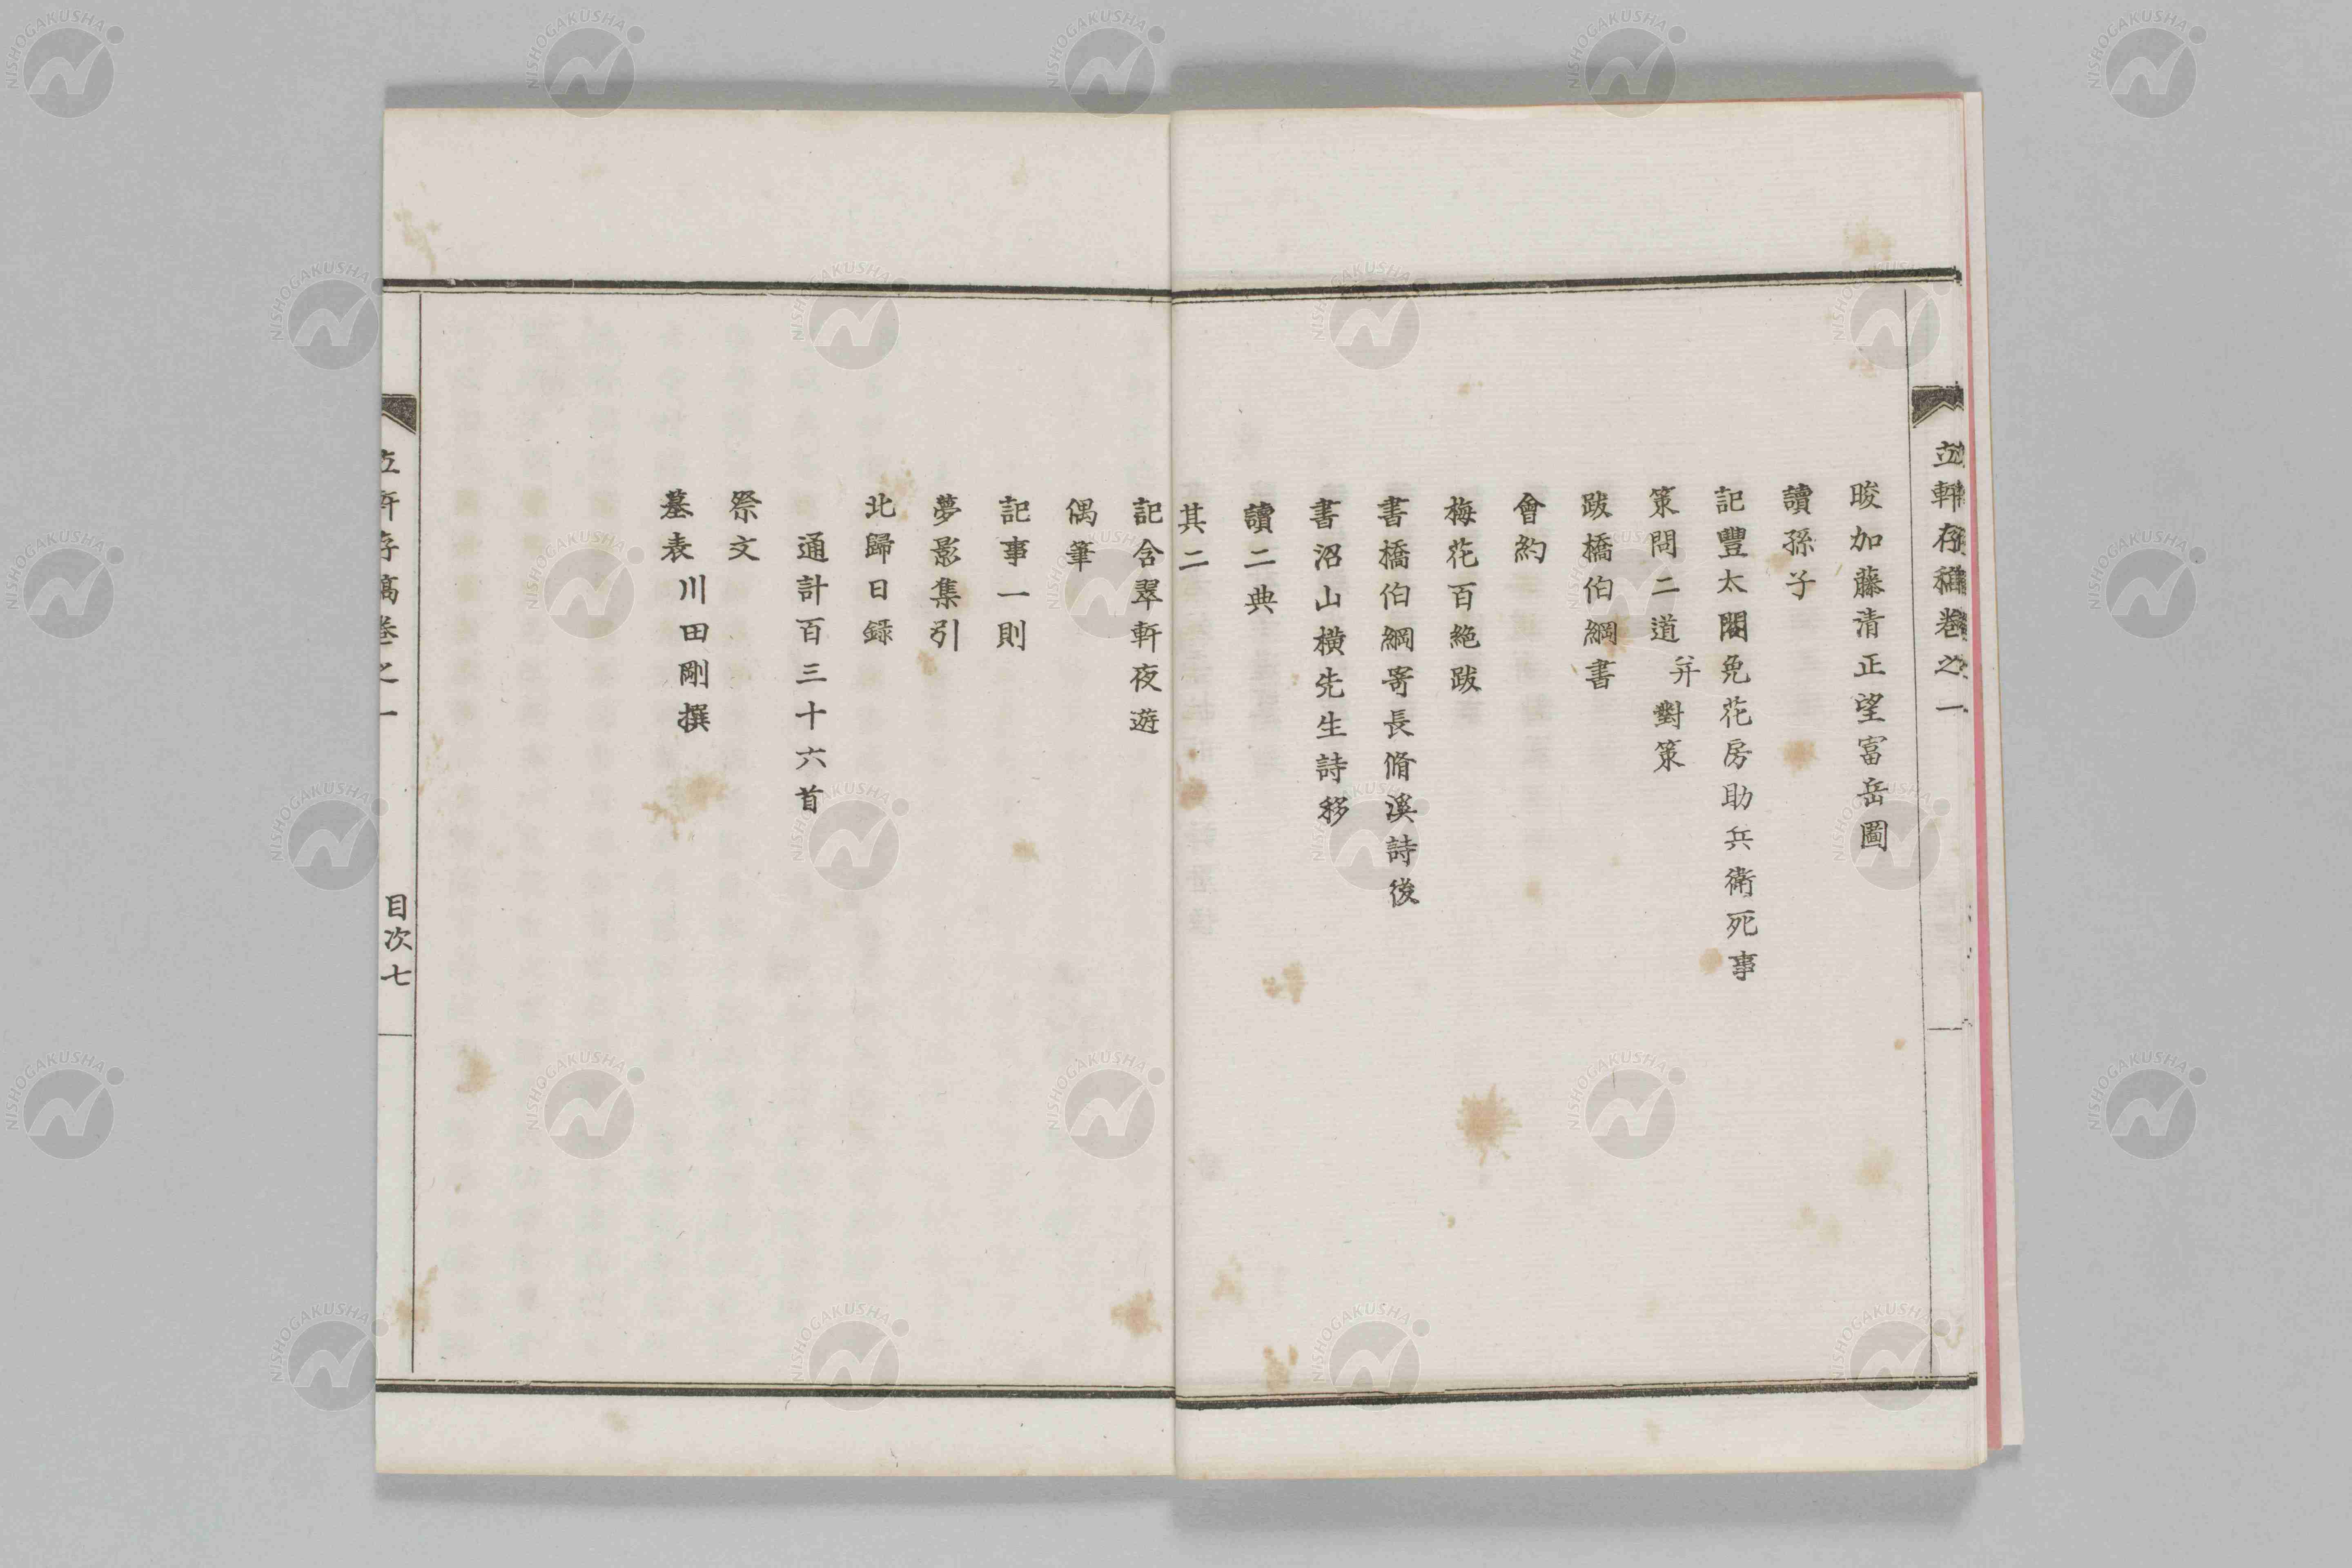 立軒存稿卷之一
晙加藤清正望富岳圖
讀孫子
記豐太閤免花房助兵衛死事
策問二道 幷對策
跋橋伯綱書
會約
梅花百絶跋
書橋伯綱寄長脩溪詩後
書沼山橫先生詩移
讀二典
其二
記含翠軒夜遊
偶筆
記事一則
夢影集引
北歸日錄
通計百三十六首
祭文
墓表 川田剛撰
立軒存稿卷之一 目次七
NISHOGAKUSHA